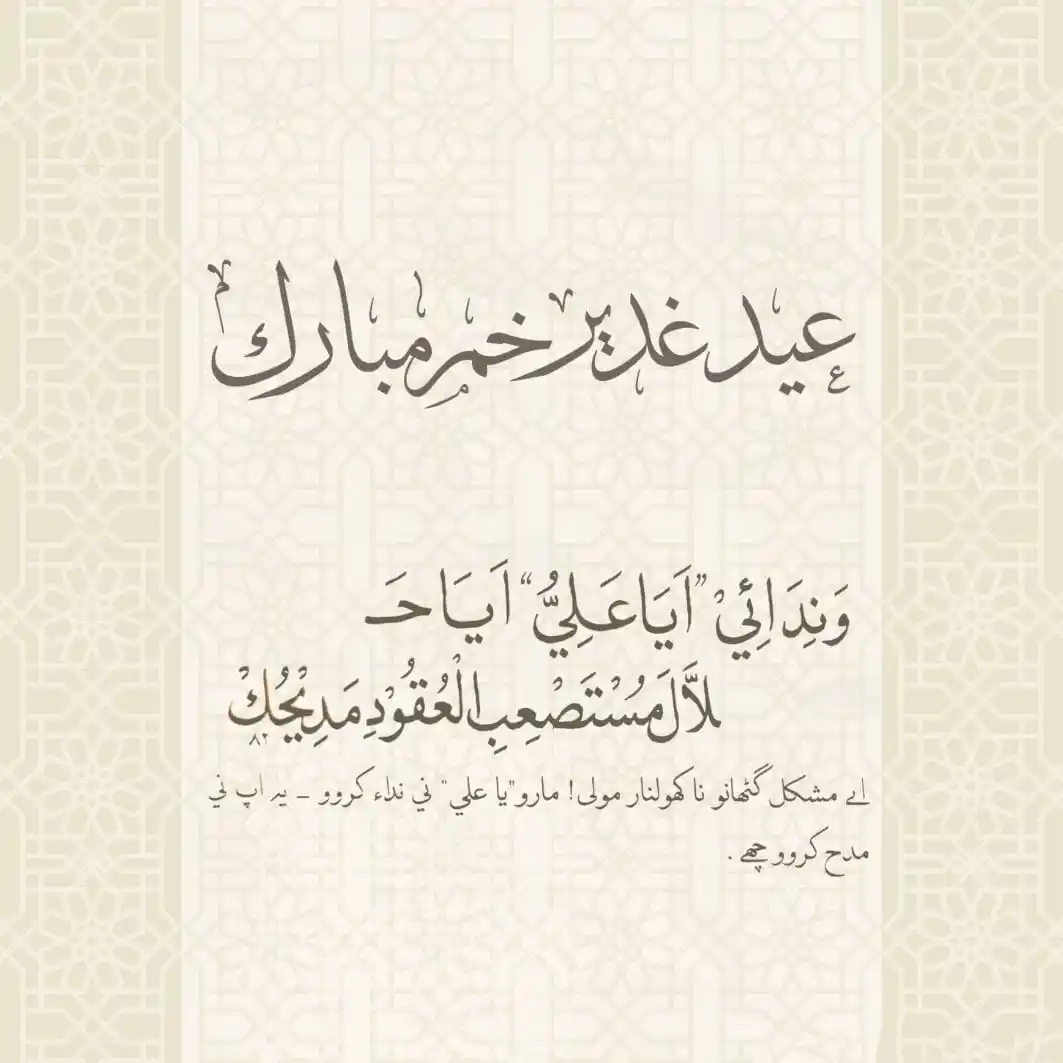 عيد غدير خم مبارك
وَنِدَائِيْ "اَيَا عَلِيُّ" اَيَا حَـ
ـلَّالَ مُسْتَصْعِبِ الْعُقُوْدِ مَدِيْحُكْ
٨٢
اے مشكل گٹھانو نا كھولنار مولى! مارو "يا علي" ني نداء كروو _ يہ اپ ني
مدح كروو چھے .